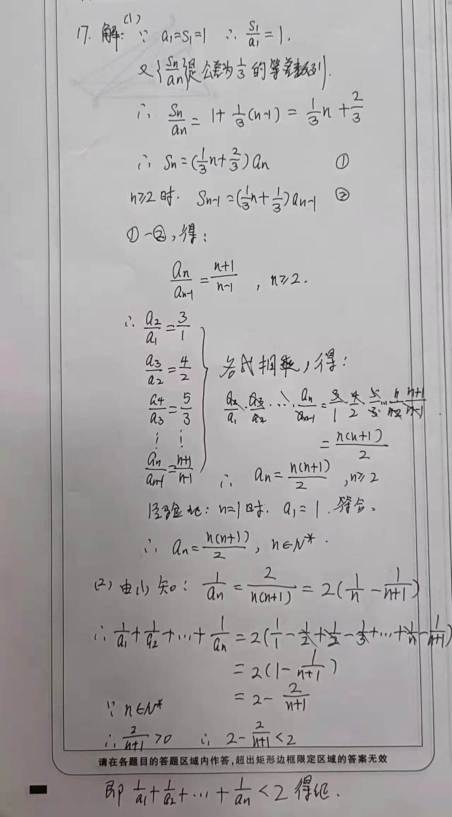 17. 解:(1) ∵ a₁=S₁=1 ∴ S₁/a₁=1.
又{Sn/an}是公差为1/3的等差数列.
∴ Sn/an = 1+1/3(n-1) = 1/3n+2/3
∴ Sn=(1/3n+2/3)an ①
n≥2时. Sn-1=(1/3n+1/3)an-1 ②
①-②,得:
an/an-1 = n+1/n-1 , n≥2.
∴ a₂/a₁=3/1
a₃/a₂=4/2
a₄/a₃=5/3
⋮ ⋮
an/an-1=n+1/n-1
各式相乘,得:
a₂/a₁·a₃/a₂·…·an/an-1=3/1·4/2·5/3…n/n-2·n+1/n-1
=n(n+1)/2
∴ an=n(n+1)/2 ,n≥2
经验证:n=1时. a₁=1.符合.
∴ an=n(n+1)/2, n∈N*.
(2) 由(1)知: 1/an = 2/n(n+1) = 2(1/n - 1/n+1)
∴ 1/a₁+1/a₂+…+1/an=2(1/1-1/2+1/2-1/3+…+1/n-1/n+1)
=2(1-1/n+1)
=2-2/n+1
∵ n∈N*
∴ 2/n+1>0 ∴ 2-2/n+1<2
请在各题目的答题区域内作答,超出矩形边框限定区域的答案无效
即 1/a₁+1/a₂+…+1/an<2 得证.